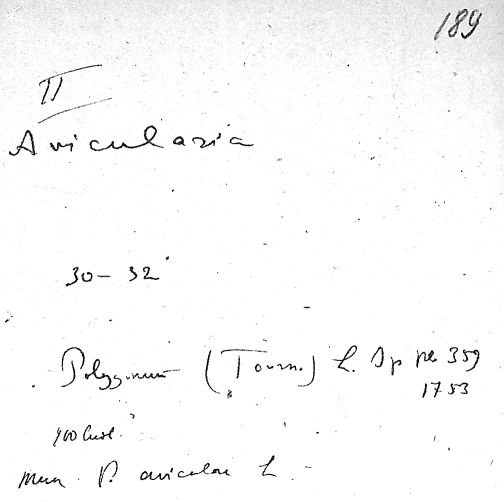 189
II
Avicularia
30-32
Polygonum (Tourn.) L. Sp 359
1753
P. aviculare L.